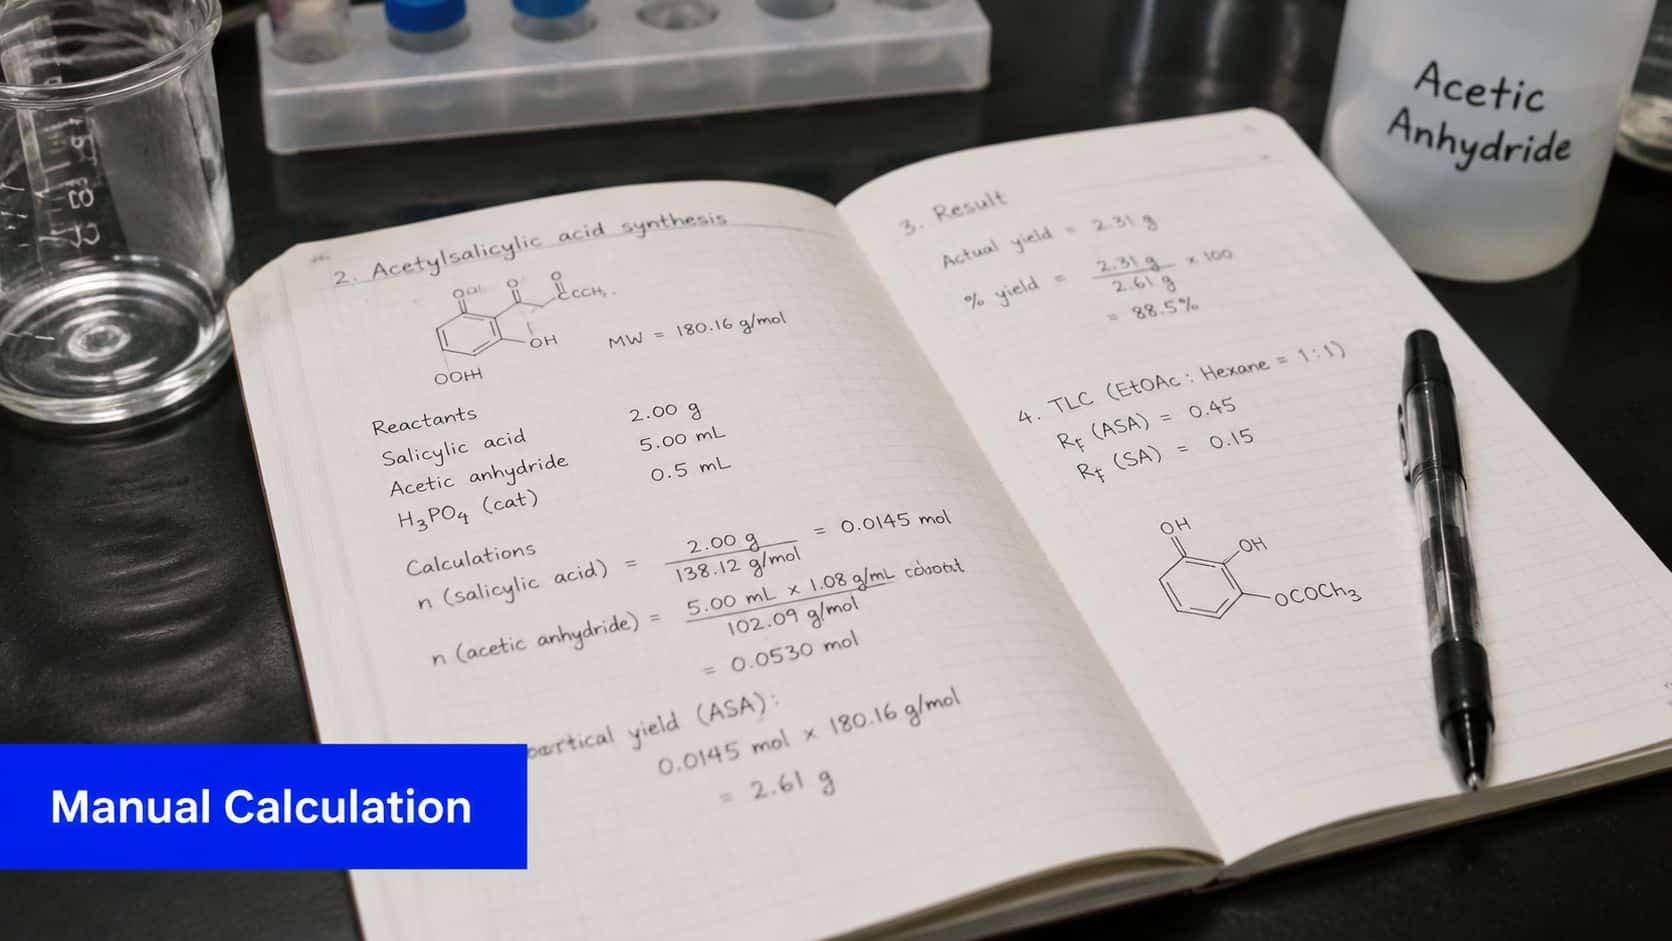 2. Acetylsalicylic acid synthesis
O
O
CCCH₃.
OH
OOHH
MW = 180.16 g/mol
Reactants
Salicylic acid 2.00 g
Acetic anhydride 5.00 mL
H₃PO₄ (cat) 0.5 mL
Calculations
n (salicylic acid) = 2.00 g / 138.12 g/mol = 0.0145 mol
n (acetic anhydride) = 5.00 mL x 1.08 g/mL / 102.09 g/mol
= 0.0530 mol
yield (ASA):
0.0145 mol x 180.16 g/mol
= 2.61 g
3. Result
Actual yield = 2.31 g
% yield = 2.31 g / 2.61 g x 100
= 88.5%
4. TLC (EtOAc : Hexane = 1:1)
Rf (ASA) = 0.45
Rf (SA) = 0.15
OH
OH
OCOCH₃
Acetic
Anhydride
Manual Calculation